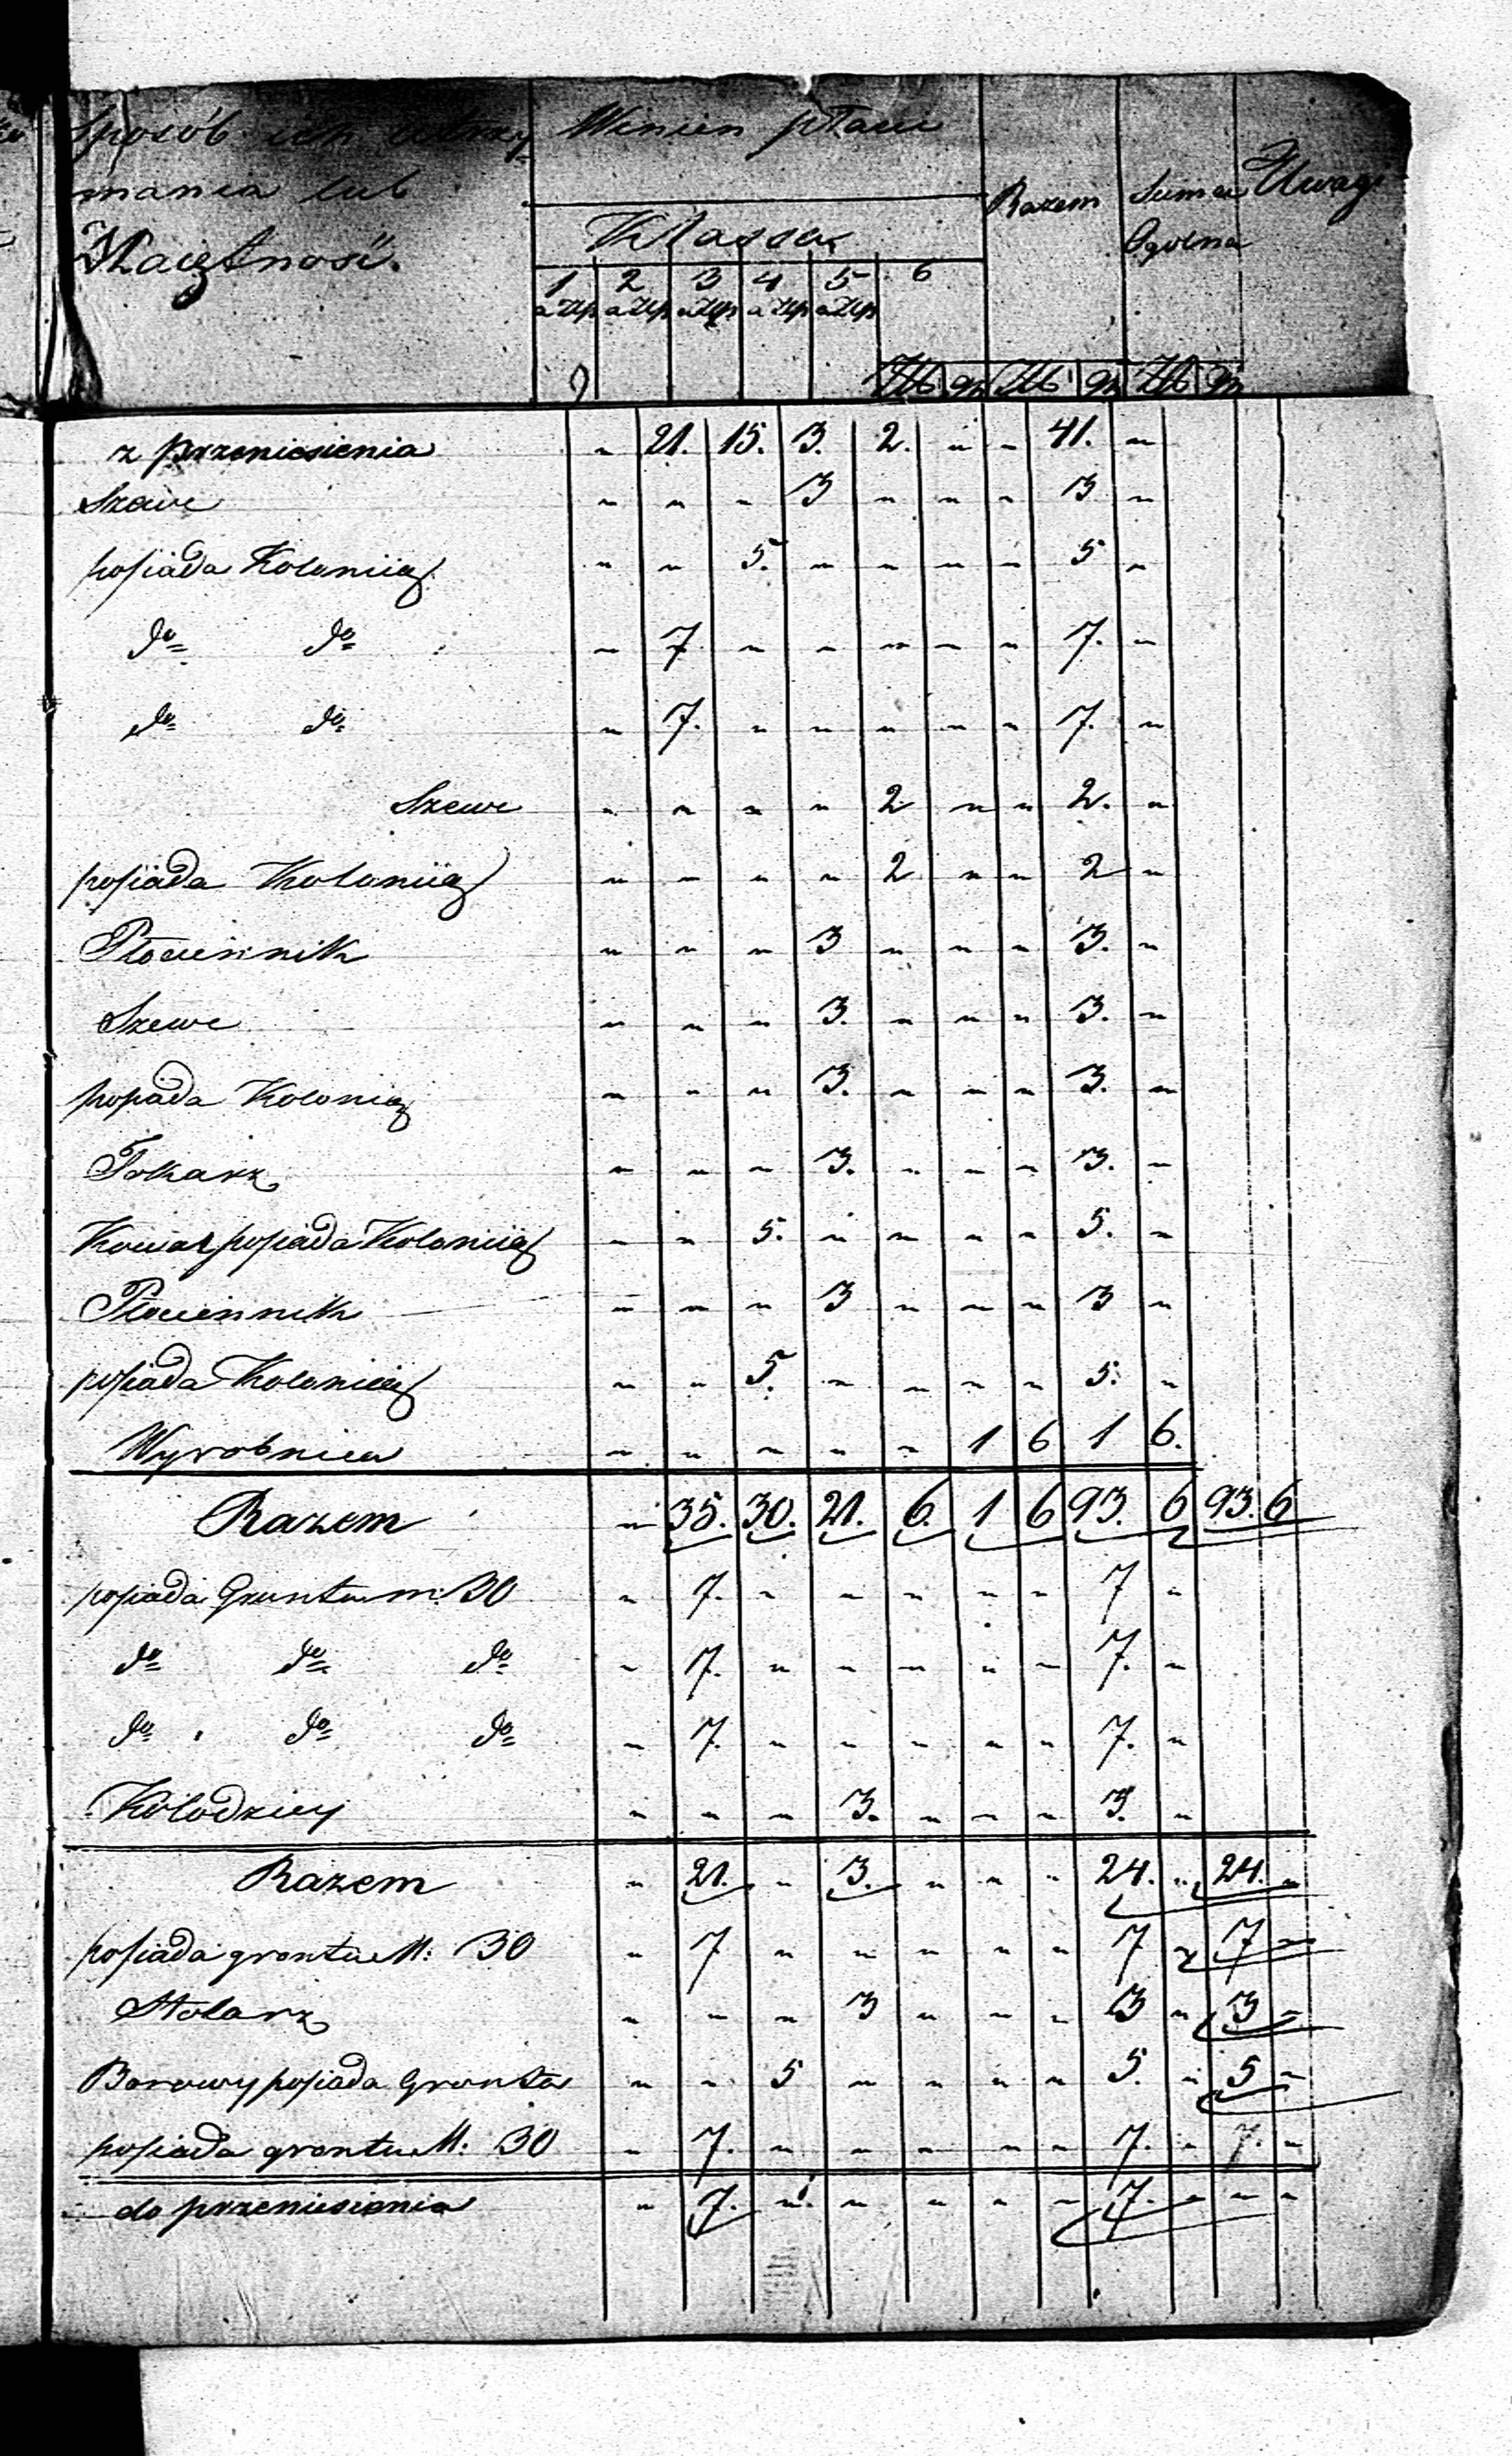 Sposób ich utrzy- Winien płacić
mania lub
Maiętność. Klassa Razem Suma Ogólna Uwagi
1 2 3 4 5 6
a Złp a Złp a Złp a Złp a Złp
Złt gr Złt gr Złt gr
z przeniesienia " 21. 15. 3. 2. " " 41. "
Szewc " " " 3 " " " 3 "
posiada Koloniią " " 5. " " " " 5 "
do do " 7 " " " " " 7. "
do do " 7. " " " " " 7. "
Szewc " " " " 2 " " 2. "
posiada Koloniią " " " " 2 " " 2 "
Płociennik " " " 3 " " " 3. "
Szewc " " " 3. " " " 3. "
posiada Kolonią " " " 3. " " " 3. "
Tokarz " " " 3. " " " 3. "
Kowal posiada Koloniią " " 5. " " " " 5. "
Płociennik " " " 3 " " " 3 "
posiada Koloniią " " 5. " " " " 5. "
Wyrobnica " " " " " 1 6 1 6.
Razem " 35. 30. 21. 6. 1 6 93. 6 93. 6
posiada Gruntu m: 30 " 7. " " " " " 7 "
do do do " 7. " " " " " 7. "
do do do " 7. " " " " " 7. "
Kołodziey " " " 3. " " " 3. "
Razem " 21. " 3. " " " 24. " 24. "
posiada gruntu M: 30 " 7 " " " " " 7 " 7 "
Stolarz " " " 3 " " " 3 " 3 "
Borowy posiada Grunta " " 5 " " " " 5. " 5 "
posiada gruntu M. 30 " 7. " " " " " 7. " 7. "
do przeniesienia " 7. " " " " " 7. " " "